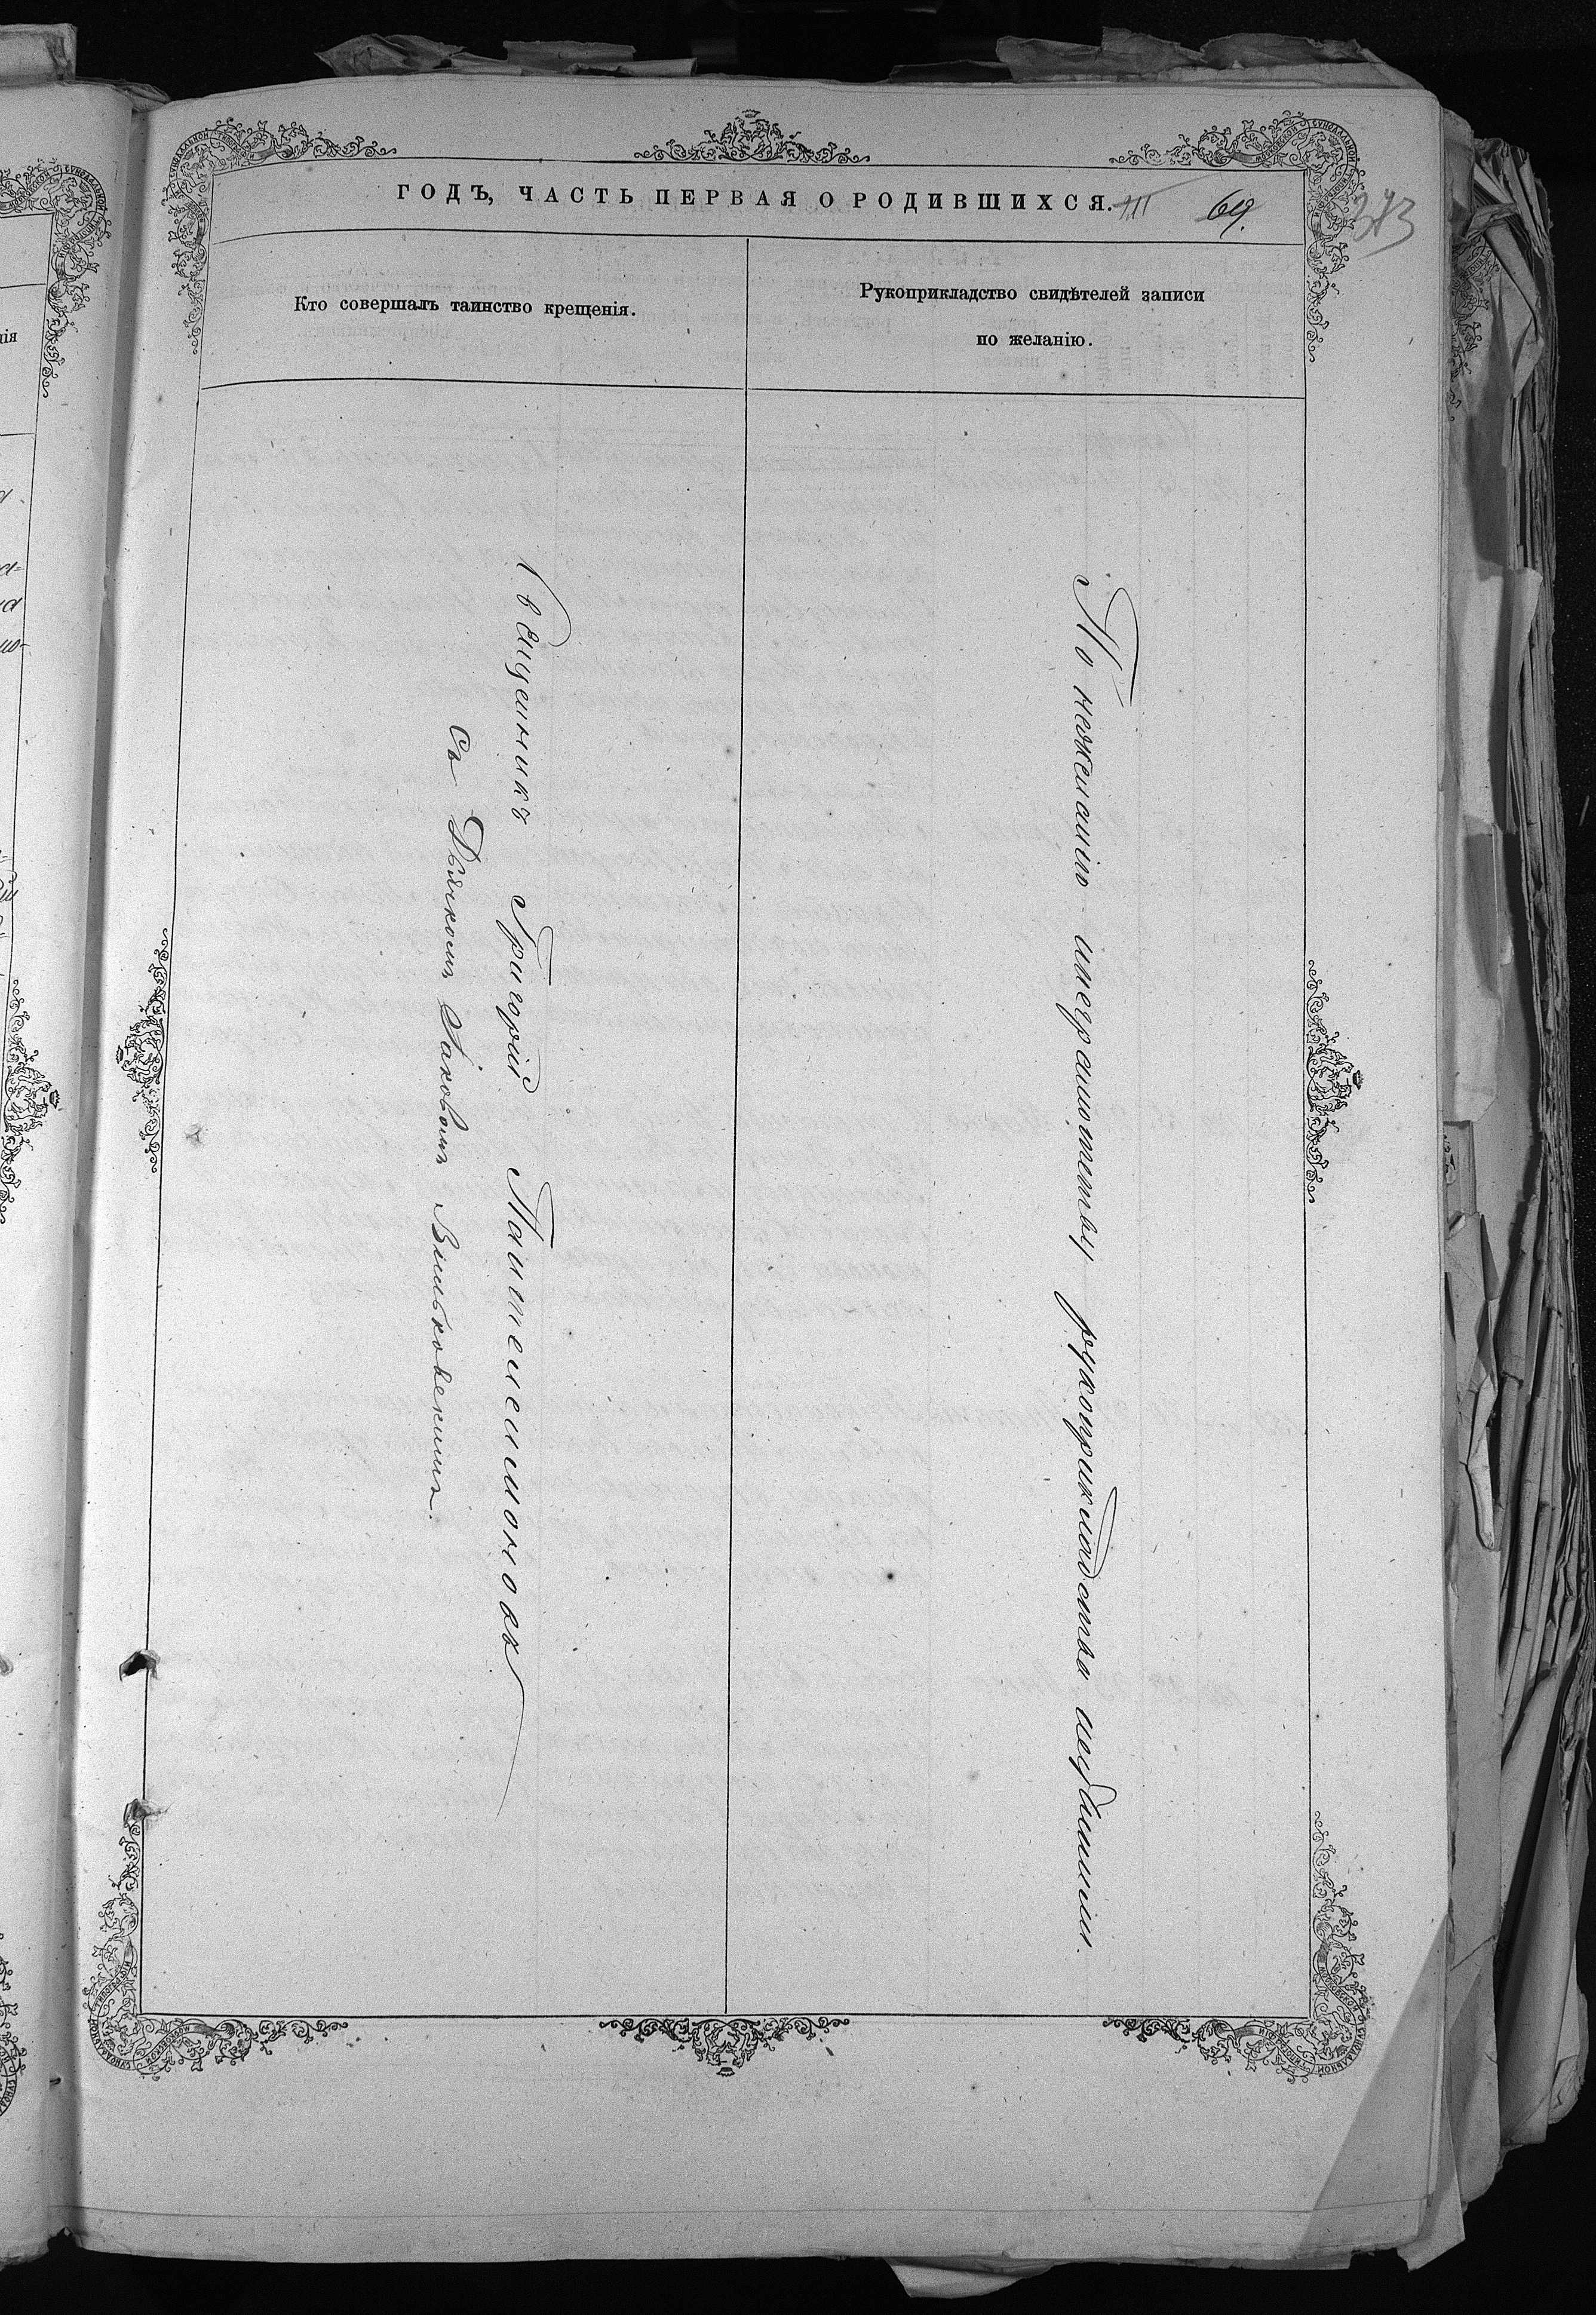 ГОДЪ, ЧАСТЬ ПЕРВАЯ О РОДИВШИХСЯ. 69. 373
Кто совершалъ таинство крещенія.
Рукоприкладство свидѣтелей записи
по желанію.
Священникъ Григорій Пантелеимоновъ
Съ Дьячкомъ Іаковомъ Вильковскимъ.
По нежеланію и неграмотству рукоприкладства не дали.